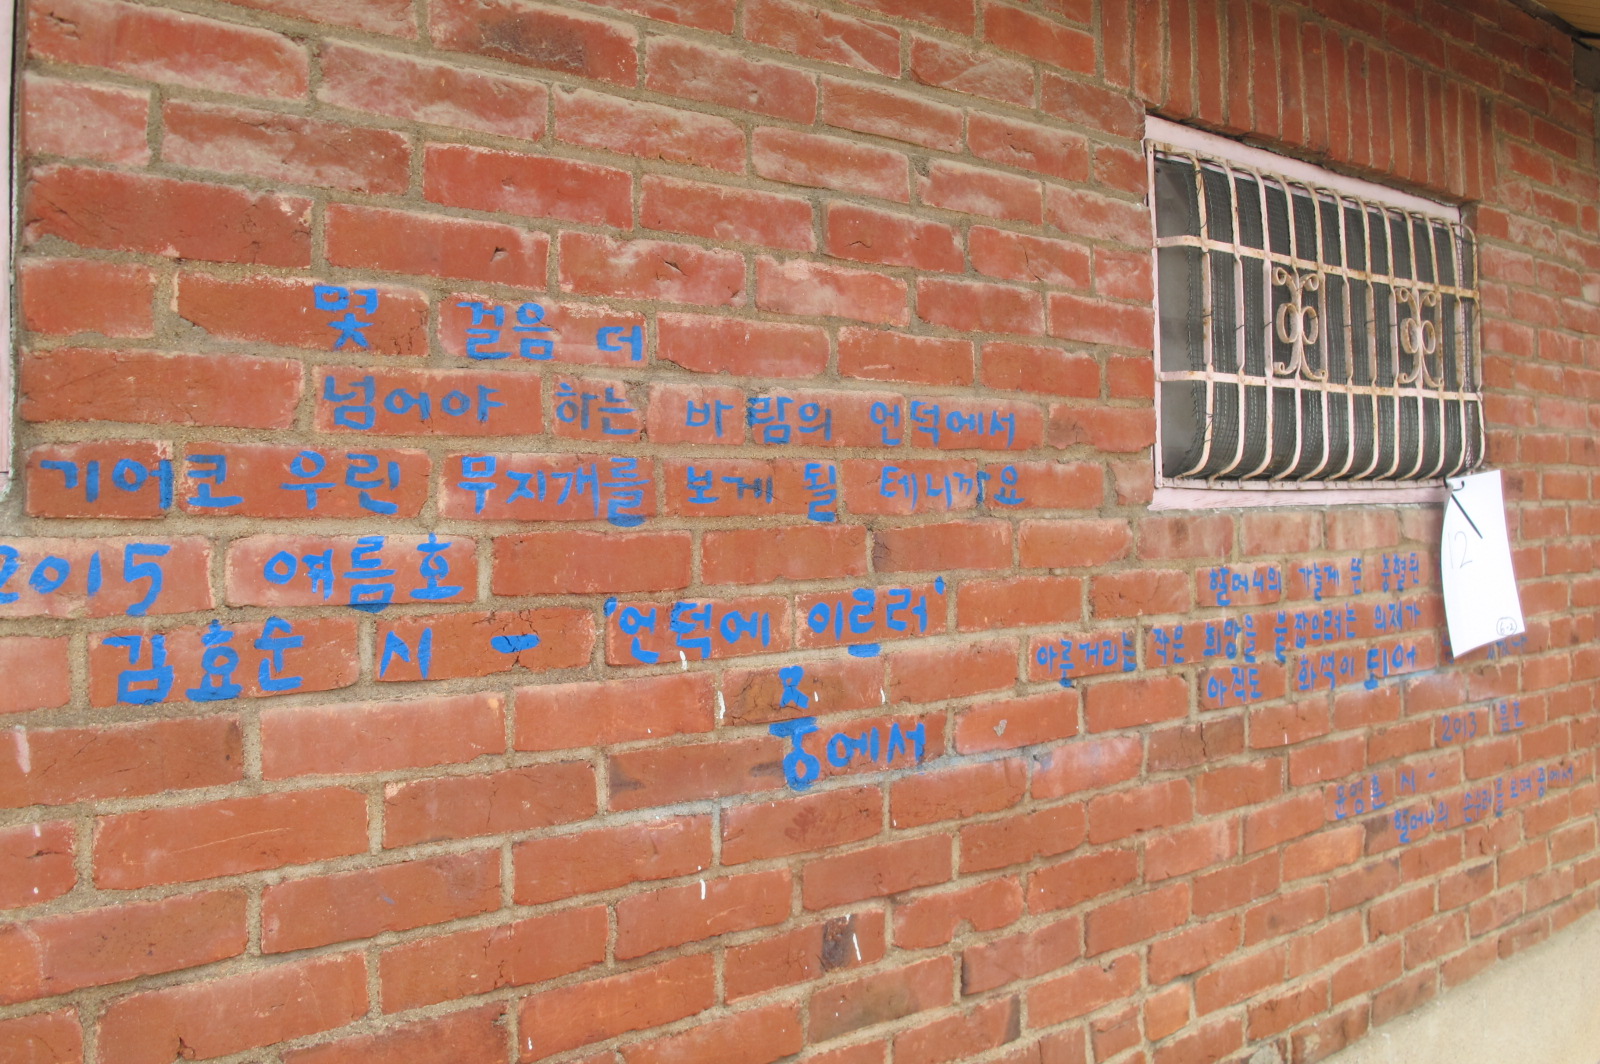 몇 걸음 더
넘어야 하는 바람의 언덕에서
기어코 우린 무지개를 보게 될 테니까요
2015 여름호
김효순 시 - '언덕에 이르러'
중에서
할머니의 가늘게 뜬 충혈된
아른거리는 작은 희망을 붙잡으려는 의지가
아직도 화석이 되어
2013 봄호
문영훈 시 -
할머니의 손수레를 보며 중에서
12